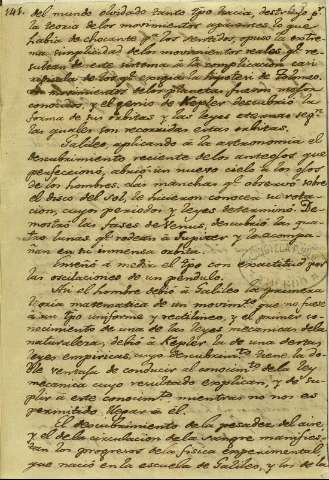 141. del mundo olvidado tanto tpo hacia, destruyó pr
la teoria de los movimientos aparentes lo que
habia de chocante pa los sentidos, opuso la extre
ma simplicidad de los movimientos reales qe re
sultan de este sistema á la complicacion casi
ridicula de los qe exigia la hipótesi de Tolomeo.
Los movimientos de los planetas fueron mejor
conocidos, y el genio de Kepler descubrió la
forma de sus orbitas y las leyes eternas segn
las quales son recorridas estas orbitas.
Galileo, aplicando á la astronomia el
descubrimiento reciente de los anteojos que
perfeccionó, abrió un nuevo cielo á los ojos
de los hombres. Las manchas qe observó sobre
el disco del Sol, le hicieron conocer su rota
cion, cuyo periodo y leyes determinó. De
mostró las fases de Venus, descubrió las qua
tro lunas qe rodean á Jupiter y lo acompa
ñan en su inmensa orbita.
Enseñó a medir el tpo con exactitud por
las oscilaciones de un péndulo.
Asi el hombre debió á Galileo la primera
teoria matematica de un movimto que no fuese
á un tpo uniforme y rectilineo, y el primer co
nocimiento de una de las leyes mecánicas de la
naturaleza; debió á Kepler la de una de esas
leyes empiricas, cuyo descubrimto tiene la do
ble ventaja de conducir al conocimto de la ley
mecanica cuyo resultado explican, y de su
plir á este conocimto mientras no nos es
permitido llegar á él.
El descubrimiento de la pesadez del aire
y el de la circulacion de la sangre manifies
tan los progresos de la fisica experimental,
que nació en la escuela de Galileo, y los de la